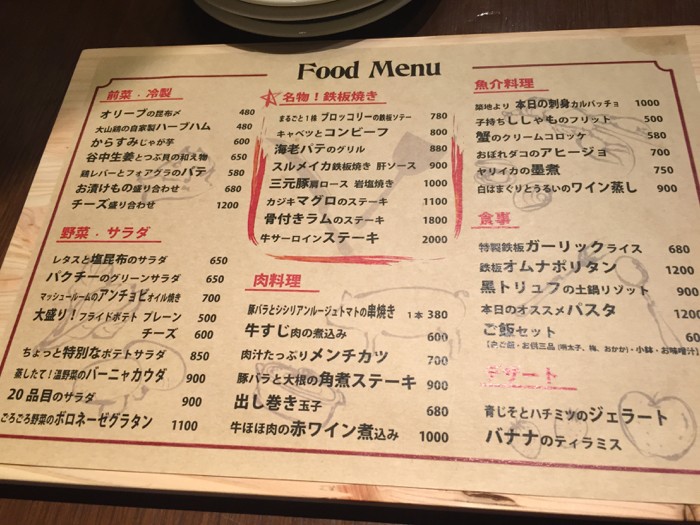 Food Menu
前菜・冷製
オリーブの昆布〆 480
大山鶏の自家製ハーブハム 480
からすみじゃが芋 600
谷中生姜とつぶ貝の和え物 650
鶏レバーとフォアグラのパテ 580
お漬けもの盛り合わせ 680
チーズ盛り合わせ 1200
野菜・サラダ
レタスと塩昆布のサラダ 650
パクチーのグリーンサラダ 650
マッシュルームのアンチョビオイル焼き 700
大盛り!フライドポテト プレーン 500
チーズ 600
ちょっと特別なポテトサラダ 850
蒸したて!温野菜のバーニャカウダ 900
20品目のサラダ 900
ごろごろ野菜のボロネーゼグラタン 1100
名物!鉄板焼き
まるごと!1株 ブロッコリーの鉄板ソテー 780
キャベツとコンビーフ 800
海老パテのグリル 880
スルメイカ鉄板焼き 肝ソース 900
三元豚肩ロース 岩塩焼き 1000
カジキマグロのステーキ 1100
骨付きラムのステーキ 1800
牛サーロインステーキ 2000
肉料理
豚バラとシシリアンルージュトマトの串焼き 1本 380
牛すじ肉の煮込み 600
肉汁たっぷりメンチカツ 700
豚バラと大根の角煮ステーキ 900
出し巻き玉子 680
牛ほほ肉の赤ワイン煮込み 1000
魚介料理
築地より 本日の刺身カルパッチョ 1000
子持ちししゃものフリット 500
蟹のクリームコロッケ 580
おぼれダコのアヒージョ 700
ヤリイカの墨煮 750
白はまぐりとうるいのワイン蒸し 900
食事
特製鉄板ガーリックライス 680
鉄板オムナポリタン 1200
黒トリュフの土鍋リゾット 900
本日のオススメパスタ 1200
ご飯セット 60
ご飯・お供三品(明太子、梅、おかか)・小鉢・お味噌汁
デザート
青じそとハチミツのジェラート
バナナのティラミス